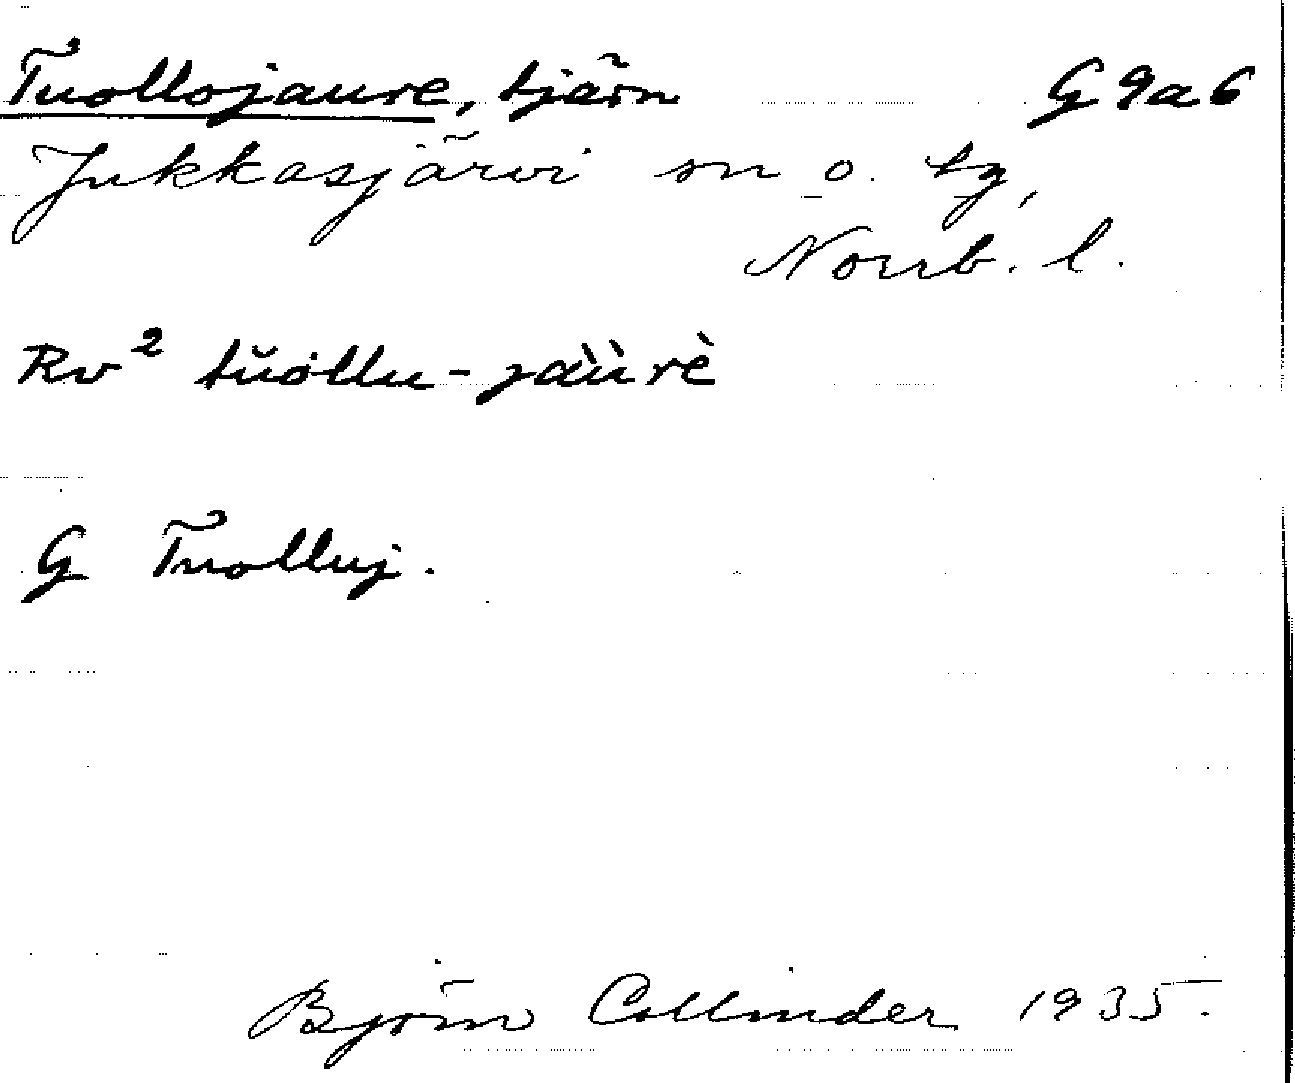 Tuollojaure, tjärn G 9a6
Jukkasjärvi sn o. tg,
Norrb. l.
Rv² tŭollu-jaùrè
G Tuolluj.
Björn Collinder 1935.